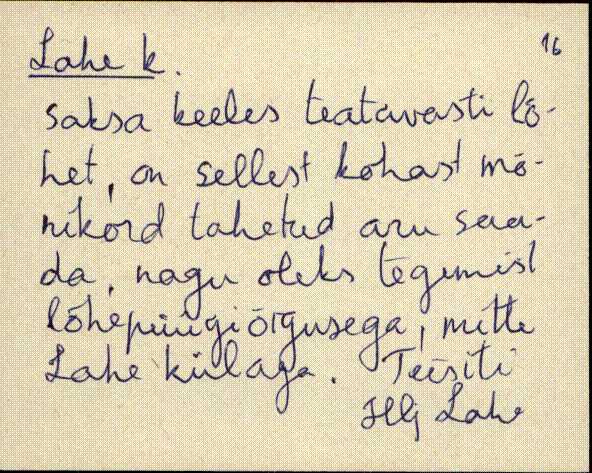 16
Lahe k.
saksa keeles teatavasti lõ-
het, on sellest kohast mõ-
nikord tahetud aru saa-
da, nagu oleks tegemist
lõhepüügiõigusega, mitte
Lahe külaga. Teisiti
Hlj Lahe